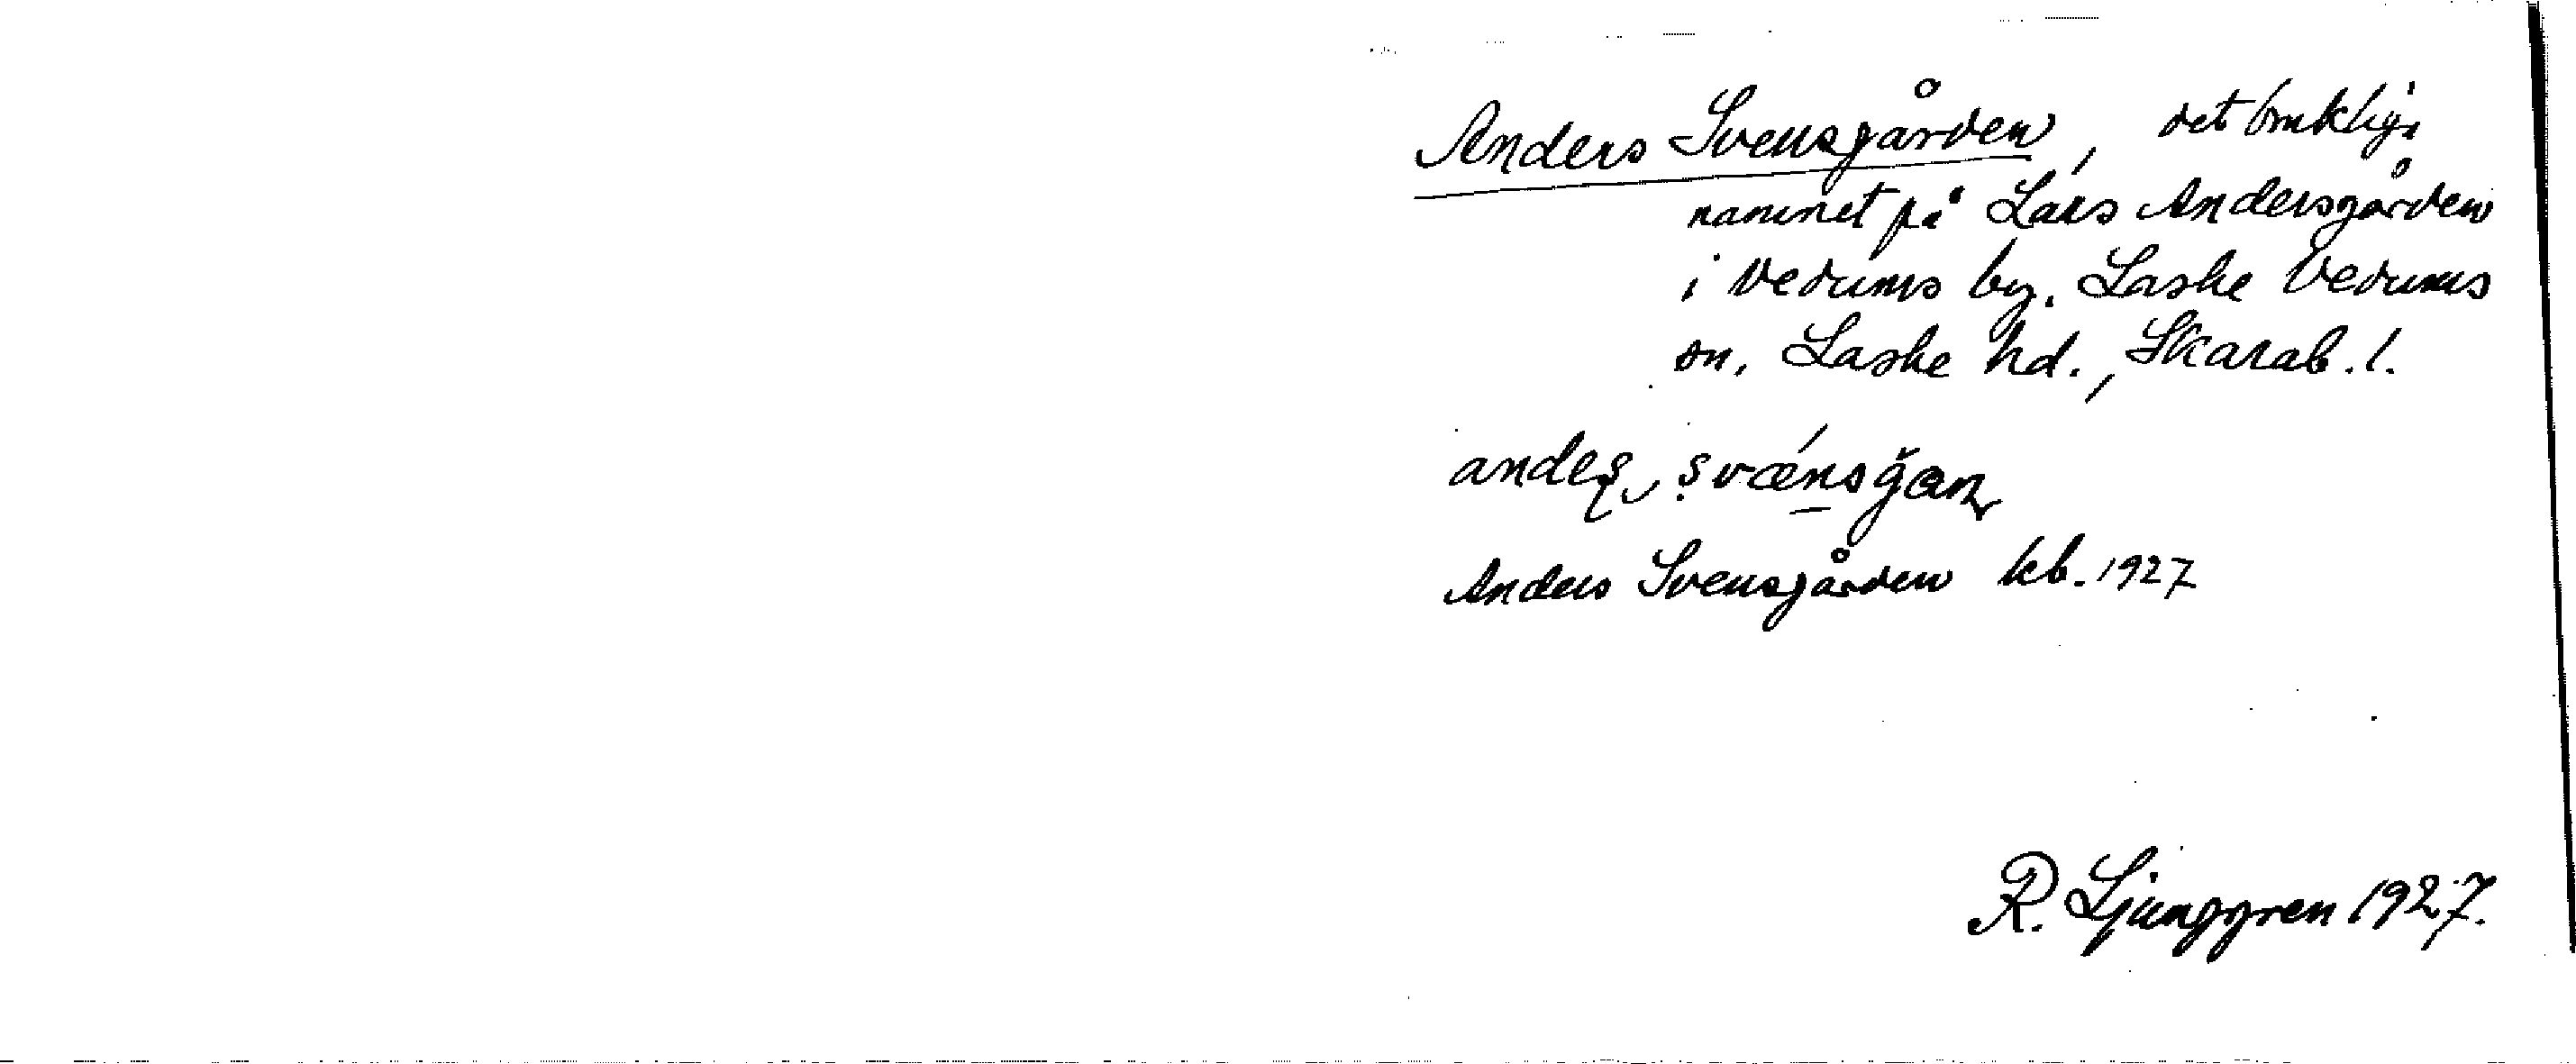 Anders Svensgården, det brukliga
namnet på Lars Andersgården
i Vedums by. Laske Vedums
sn, Laske hd., Skarab. l.
Anders Svensgården kb. 1927
R. Ljunggren 1927.